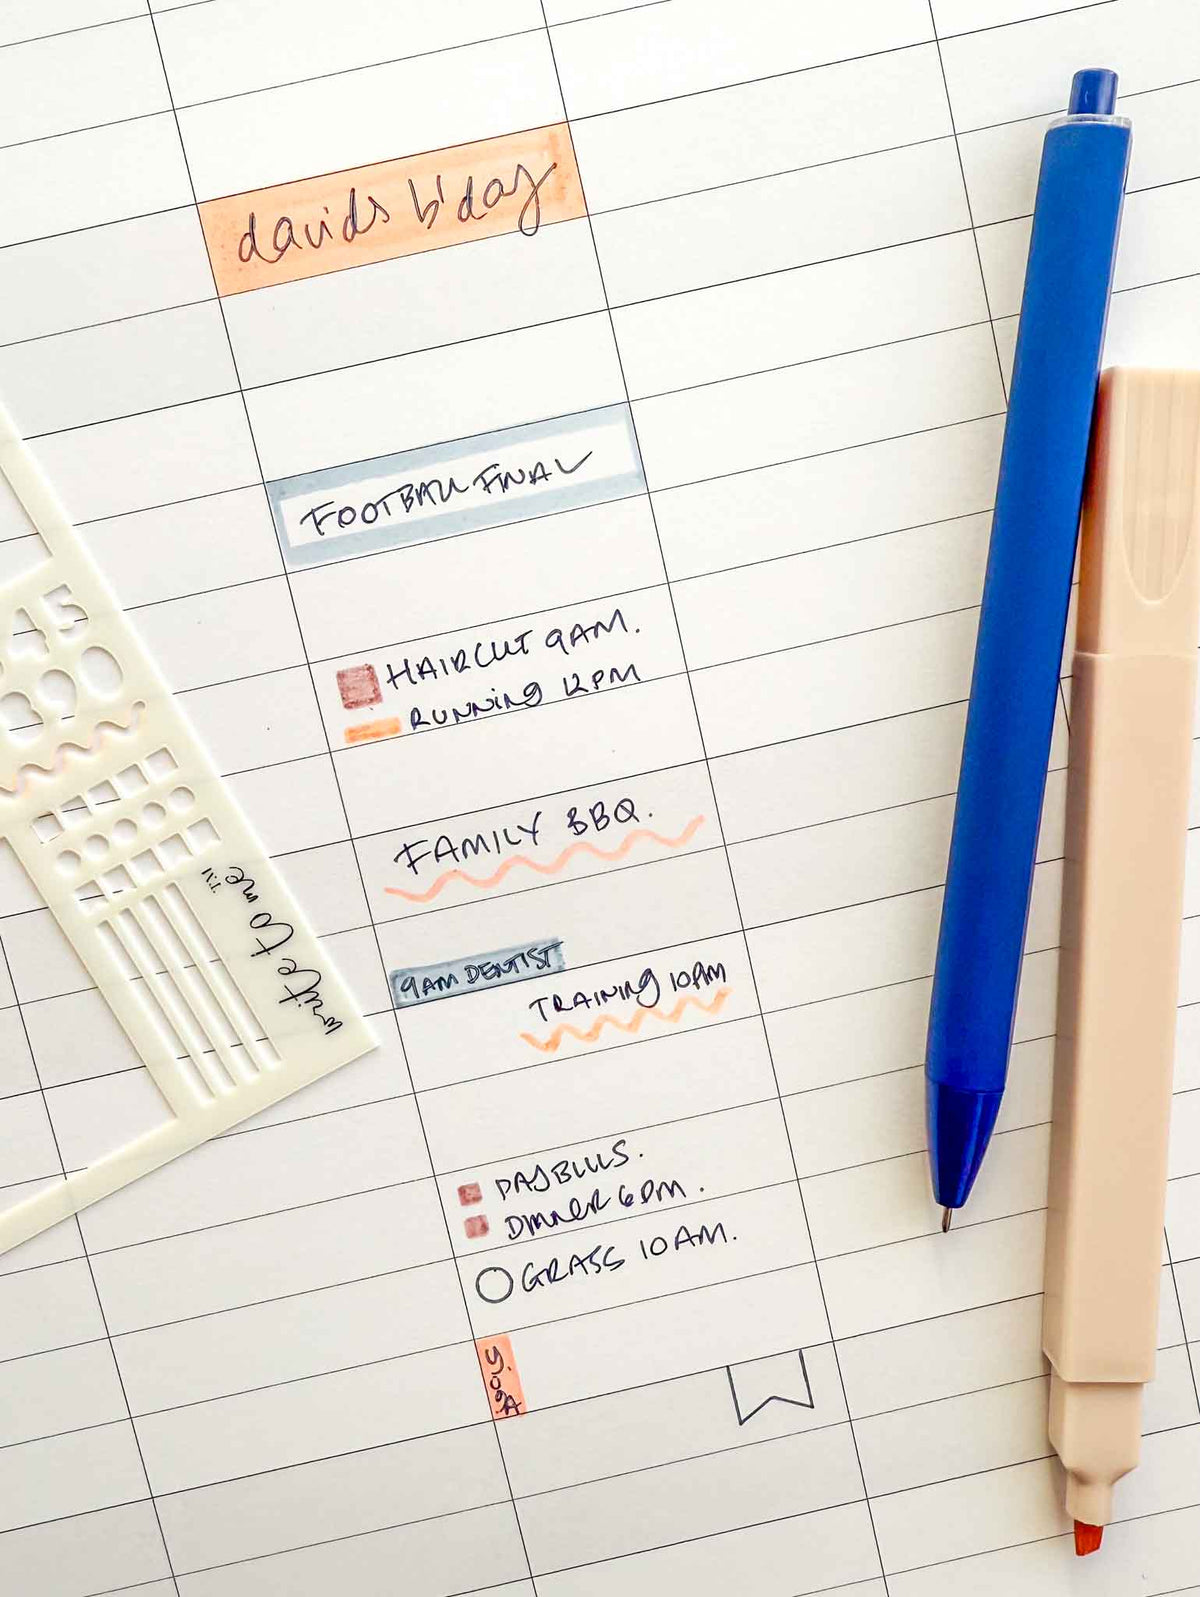 davids b'day
FOOTBALL FINAL
HAIRCUT 9AM.
RUNNING 12PM
FAMILY BBQ.
9AM DENTIST
TRAINING 10AM
PAY BILLS.
DINNER 6PM.
GRASS 10AM.
YOGA
45
890
write to me
TM